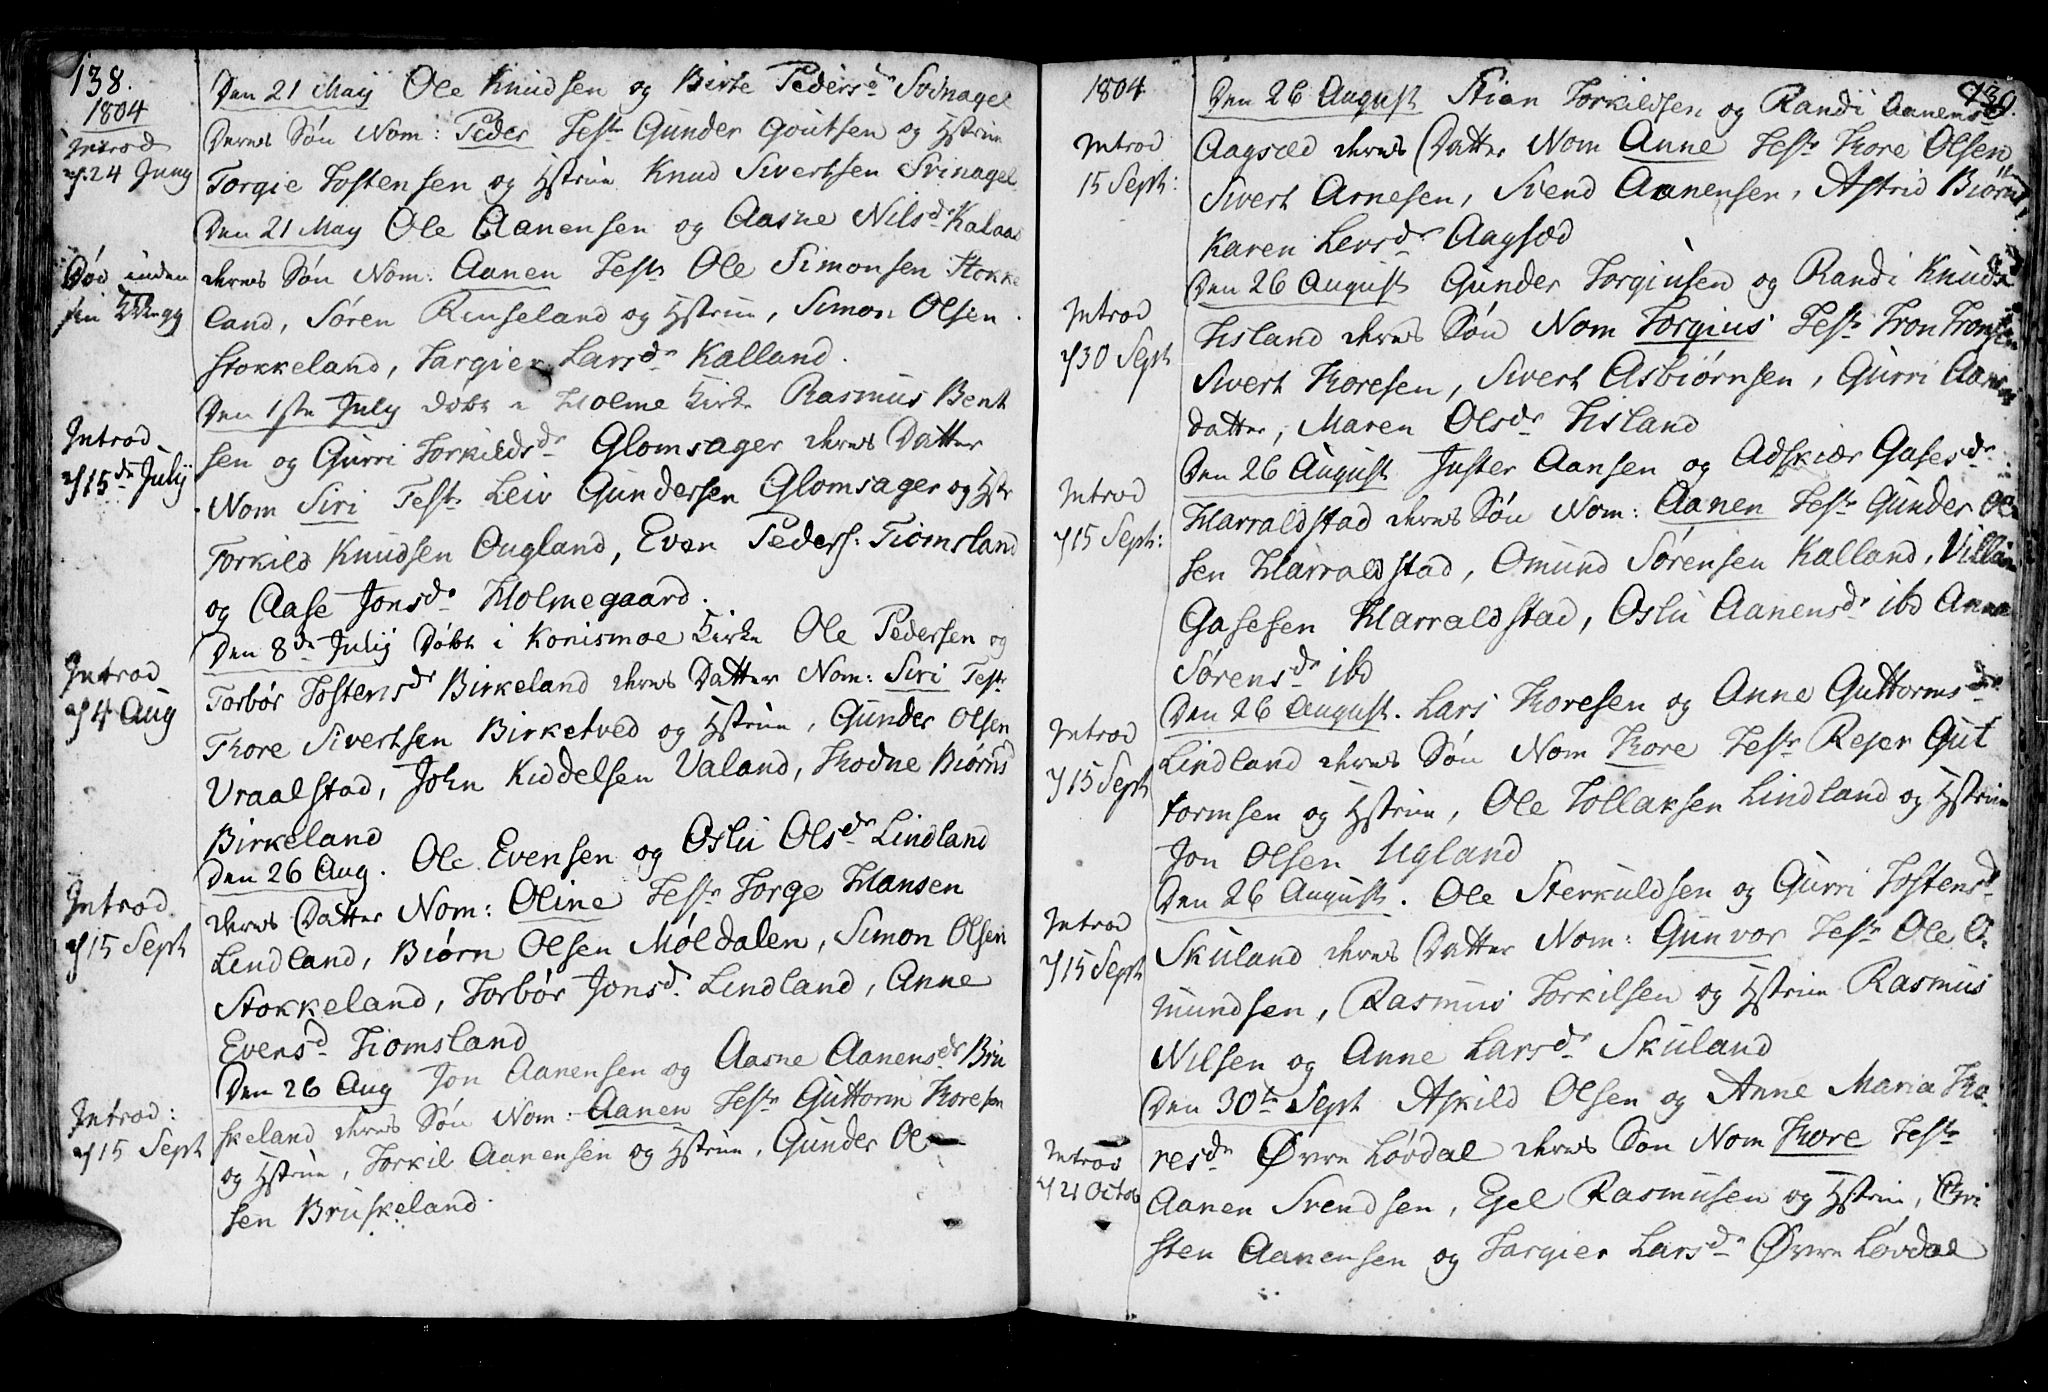 138.
1804
Introd
24 Juny
Den 21 May Ole Knudsen og Birte Pedersdr Svinagel
deres Søn Nom: Peder Test. Gunder Goutsen og Hstrue
Torgie Tostensen og Hstrue Knud Sivertsen Svinagel
Den 21 May Ole Aanensen og Aasne Nilsdr Kalaa
Død inden
sin Kkegg
deres Søn Nom: Aanen Test Ole Simonsen Stokke
land, Søren Rinseland og Hstrue, Simon Olsen
Stokkeland, Targier Larsdr Kalland.
Den 1ste July døbt i Holme Kirke Rasmus Bent
Introd.
15de July
sen og Gurri Torkildsdr Glomsager deres Datter
Nom Siri Test. Leiv Gundersen Glomsager og Hstr
Torkild Knudsen Ougland, Even Peders: Tiomsland
og Aase Jonsdr Holmegaard.
Den 8de July døbt i Konismoe Kirke Ole Pedersen og
Introd
4 Aug
Torbør Tostensdr Birkeland deres Datter Nom: Siri Test
Thore Sivertsen Birketved og Hstrue, Gunder Olsen
Vraalstad, John Kiddelsen Valand, Thodne Biørnsd
Birkeland
Den 26 Aug. Ole Evensen og Oslu Olsdr Lindland
Introd.
15 Sept
deres Datter Nom: Oline Test Torge Hansen
Lindland, Biørn Olsen Møldalen, Simon Olsen
Stokkeland, Torbør Jonsdr Lindland, Anne
Evensd. Tiomsland
Den 26 Aug Jon Aanensen og Aasne Aanensdr Bru
Introd:
15 Sept
skeland deres Søn Nom: Aanen Test Guttorm Thoresen
og Hstrue, Torkil Aanensen og Hstrue, Gunder Ol
sen Bruskeland.
1804
139.
Introd
15 Sept:
Den 26 August Stian Torkildsen og Randi Aanensd
Aagsæd deres Datter Nom Anne Test Thore Olsen
Sivert Arnesen, Svend Aanensen, Astrid Biørnsd
Karen Levsdr Aagsæd
Den 26 August Gunder Torgiusen og Randi Knudsd
Introd
30 Sept
Tisland deres Søn Nom Torgius Test Tron Tronsen
Sivert Thoresen, Sivert Asbiørnsen, Gurri Aanens
datter, Maren Olsdr Tisland
Den 26 August Juster Aansen og Adskiær Gasesdr
Introd
15 Sept:
Harraldstad deres Søn Nom: Aanen Test Gunder Ol
sen Harraldstad, Omund Sørensen Kalland, Villum
Gasesen Harraldstad, Oslu Aanensdr ibd Anne
Sørensdr ibd
Den 26 August. Lars Thoresen og Anne Guttormsdr
Introd
15 Sept
Lindland deres Søn Nom Thore Test Rejer Gut
tormsen og Hstrue, Ole Tollaksen Lindland og Hstrue
Jon Olsen Ugland
Den 26 August. Ole Sterkuldsen og Gurri Tostensd
Introd
15 Sept
Skuland deres Datter Nom: Gunvor Test Ole O-
mundsen, Rasmus Torkilsen og Hstrue Rasmus
Nilsen og Anne Larsdr Skuland
Den 30te Sept Askild Olsen og Anne Maria Tho-
Introd
21 Octob
resdr Øvre Løvdal deres Søn Nom Thore Test
Aanen Svendsen, Egel Rasmusen og Hstrue, Chri
sten Aanensen og Targier Larsdr Øvre Løvdal